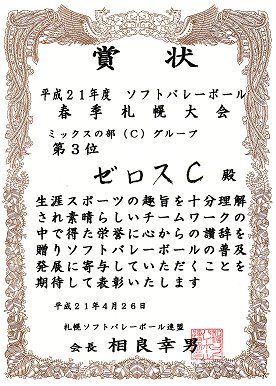 賞状
平成21年度 ソフトバレーボール
春季札幌大会
ミックスの部(C)グループ
第3位
ゼロスC 殿
生涯スポーツの趣旨を十分理解
され素晴らしいチームワークの
中で得た栄誉に心からの讃辞を
贈りソフトバレーボールの普及
発展に寄与していただくことを
期待して表彰いたします
平成21年4月26日
札幌ソフトバレーボール連盟
会長 相良幸男